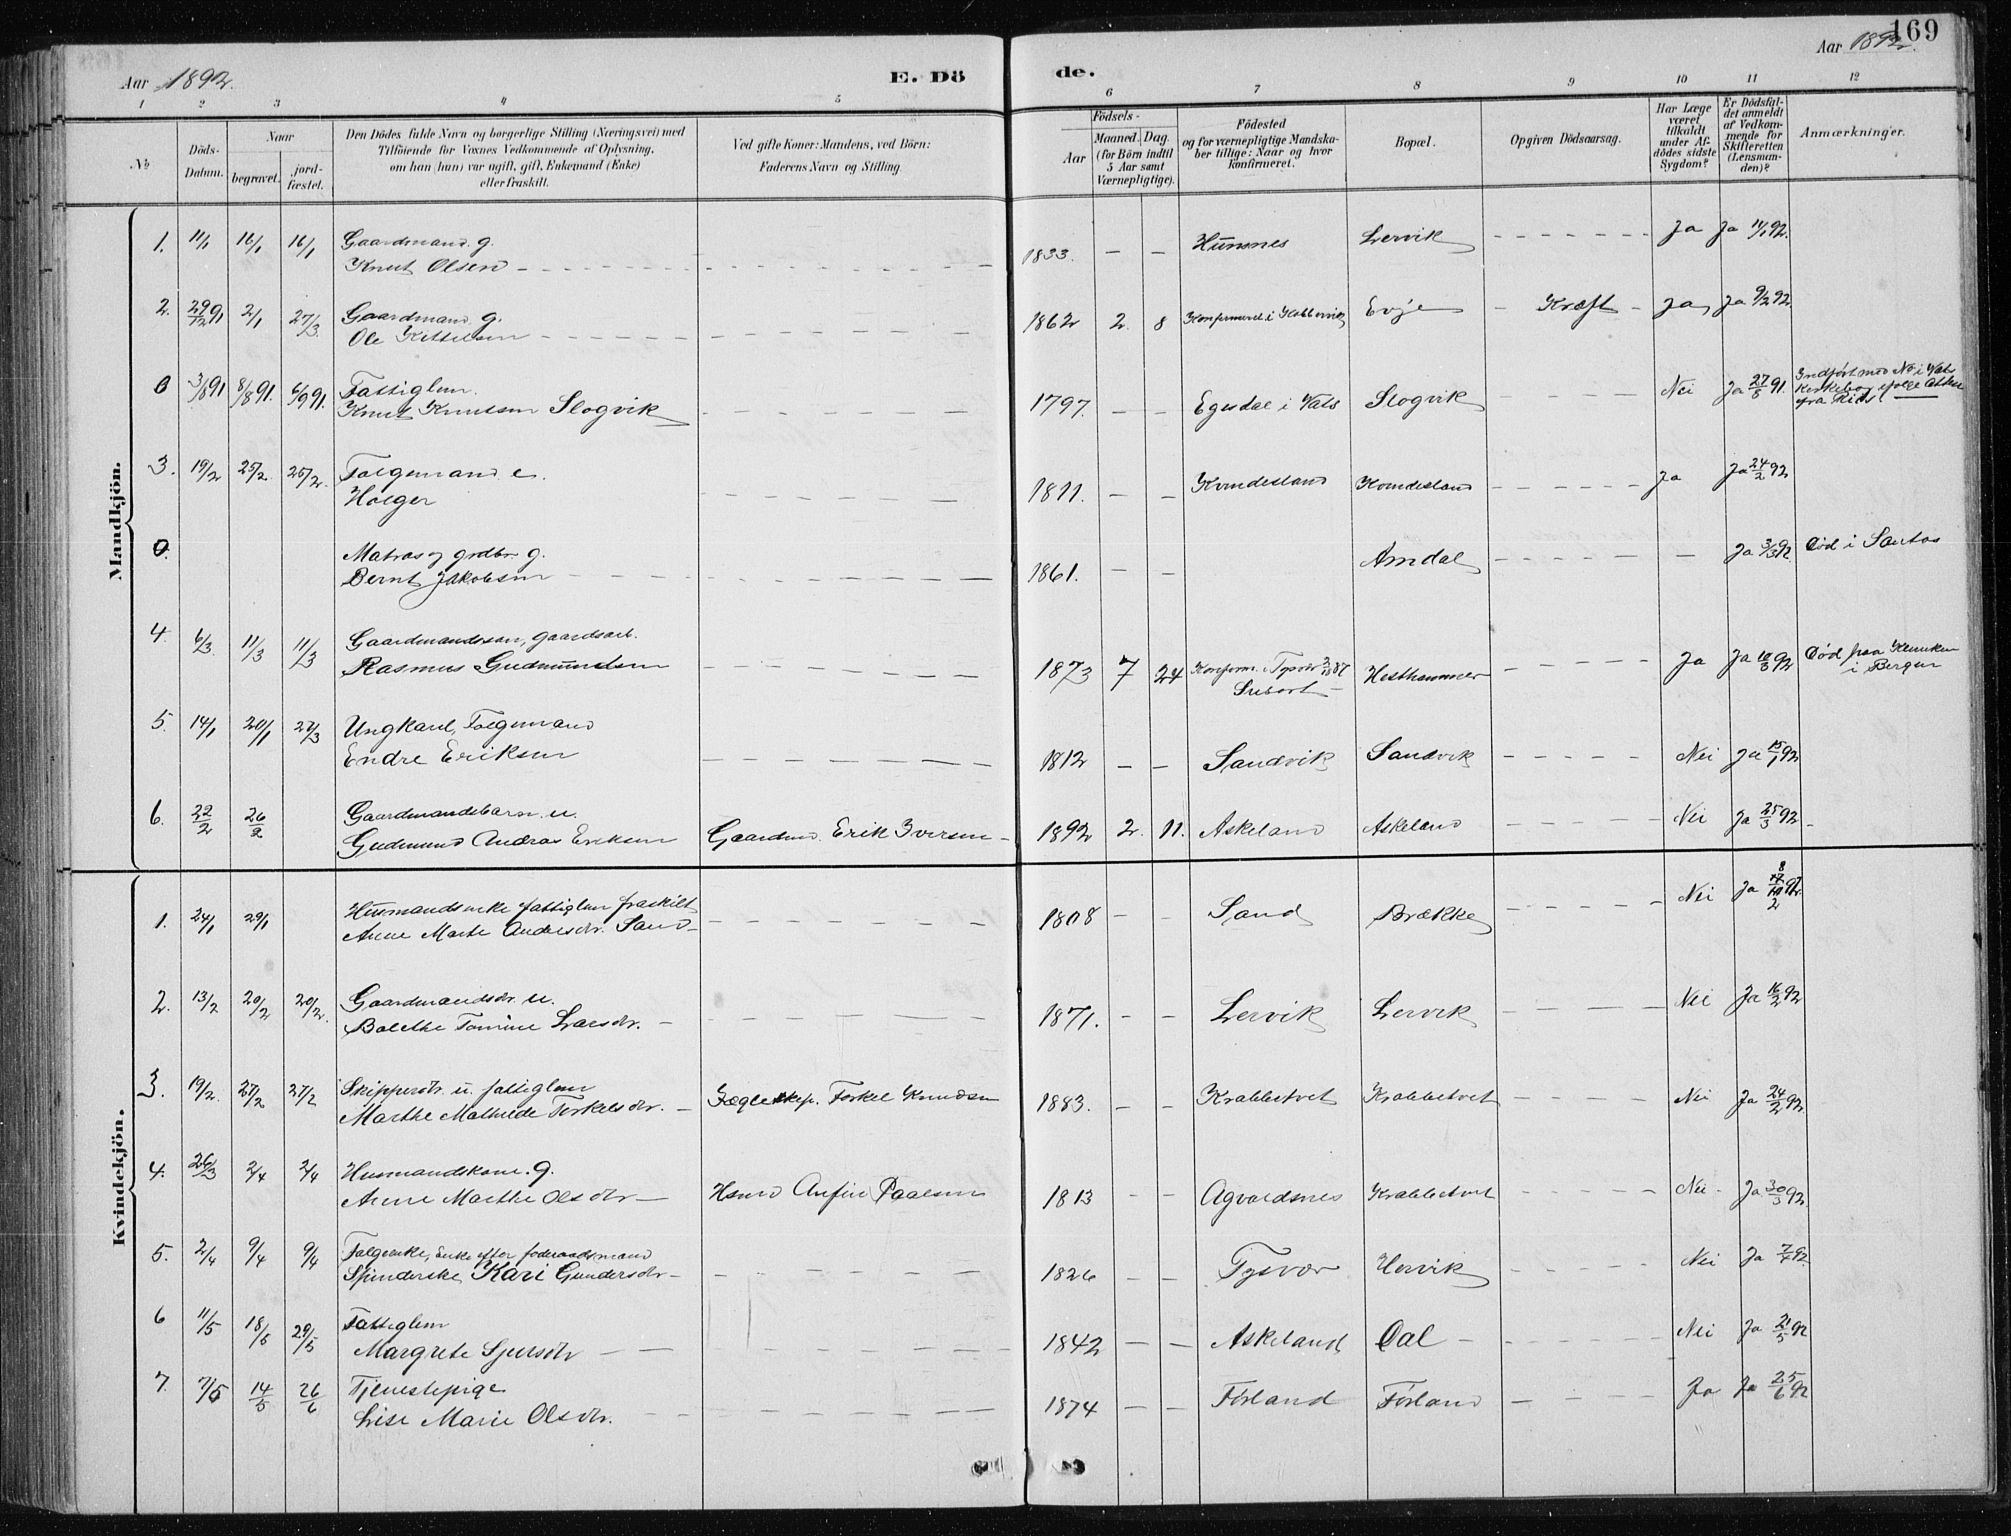 169
Aar 1892.
E. Dö
de.
Aar 1892.
1 2 3 4 5 6 7 8 9 10 11 12
No
Döds-Datum.
Naar
begravet.
jord-fæstet.
Den Dödes fulde Navn og borgerlige Stilling (Næringsvei) med
Tilföiende for Voxnes Vedkommende af Oplysning,
om han (hun) var ugift, gift, Enkemand (Enke)
eller fraskilt.
Ved gifte Koner: Mandens, ved Börn:
Faderens Navn og Stilling.
Födsels-
Aar
Maaned. Dag.
(for Börn indtil
5 Aar samt
Værnepligtige).
Födested
og for værnepligtige Mandska-
ber tillige: Naar og hvor
konfirmeret.
Bopæl.
Opgiven Dödsaarsag.
Har Læge
været
tilkaldt
under Af-
dödes sidste
Sygdom?
Er Dödsfal-
det anmeldt
af Vedkom-
mende for
Skifteretten
(Lensman-
den)?
Anmærkninger.
Mandkjön.
1. 11/1 16/1 16/1 Gaardmand. g.
Knut Olsen 1833. – – Hunsnes Lervik Ja Ja 14/1 92.
2. 29/12 91 2/1 27/3. Gaardmand g.
Ole Kittilsen 1862 2. 8 Konfirmeret i Evje Kræft Ja Ja 9/2 92
0 3/8 91 8/8 91. 6/9 91. Fattiglem.
Knut Knutsen Slogvik 1797. – – Egesdal i Vats Slogvik Nei Ja 27/8 91. Indført med No i Vats
Kirkebog ifølge Attest
fra
3. 19/2 25/2. 25/2. Folgemand e.
Holger 1811. – – Kvindesland Kvindesland Ja Ja 24/2 92
0. Matros og grdbr. g.
Bernt Jakobsen 1861. – – Amdal – Ja 3/3 92 Død i Santos
4. 6/3. 11/3 11/3 Gaardmandssøn, gaardsarb.
Rasmus Gudmundsen 1873 7 24 Konform. i Tysvær 87 Hesthammer Ja Ja 10/3 92 Død paa Kliniken
i Bergen
5. 14/1 20/1 27/3 Ungkarl, Folgemand
Endre Eriksen 1812 – – Sandvik Sandvik Nei Ja 15/1 92
6. 22/2 26/2 Gaardmandsbarn. u.
Gudmund Andreas Eriksen Gaardmd. Erik Iversen 1892 2. 11. Askeland Askeland Nei Ja 25/3 92
Kvindekjön.
1. 24/1 29/1 Husmandsenke fattiglem fraskilt
Anne Marte Andersdr. Sand 1808 – – Sand Brække Nei Ja
2. 13/2 20/2 20/2. Gaardmandsdr. u.
Bolethe Tomine Larsdr. 1871. – – Lervik Lervik Nei Ja 16/2 92
3. 19/2. 27/2 27/2 Skippersdr. u. fattiglem
Marthe Mathilde Torkelsdr. Jægteskip. Torkel Knudsen 1883. – – Krabbetveit Krabbetveit Nei Ja 24/2 92.
4. 26/3 2/4 2/4 Husmandskone. g.
Anne Marthe Olsdr Hsmd Anfin Paalsen 1813 – – Agvaldsnes Krabbetveit Nei Ja 30/3 92.
5. 2/4 9/4 9/4 Folgeenke, Enke efter føderaadsmand
Kari Gundersdr 1826 – – Tysvær Hervik Nei Ja 7/4 92
6 11/5 18/5 29/5 Fattiglem
Margrete Sjursdr 1842 – – Askeland Dal Nei Ja 21/5 92
7. 7/5 14/5 26/6 Tjenestepige
Lise Marie Olsdr. 1874 – – Førland Førland Ja Ja 25/6 92